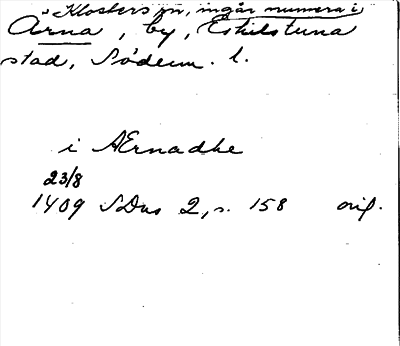 i Klosters sn, ingår numera i
Ärna, by, Eskilstuna
stad, Söderm. l.
i Ærnadhe
23/8
1409 SDns 2, s. 158 orig.